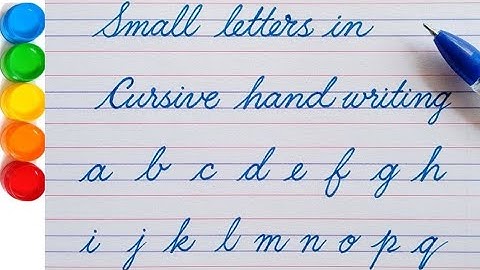 Small letters in
Cursive hand writing
a b c d e f g h
i j k l m n o p q